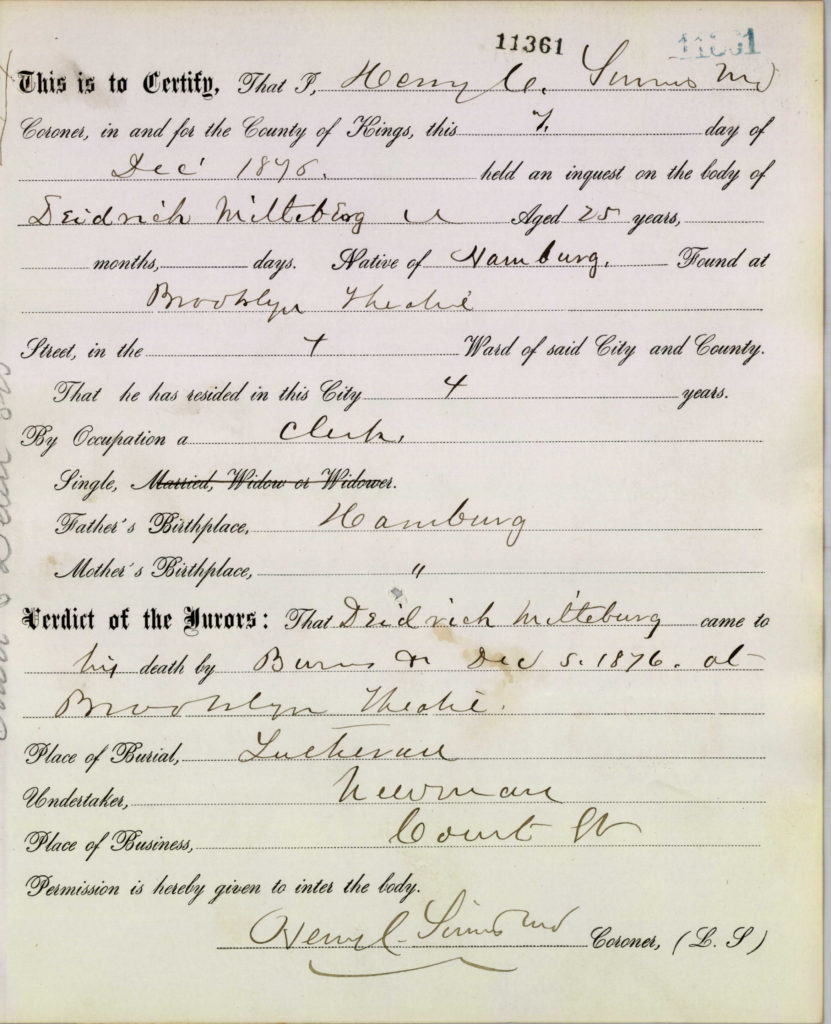 11361 11361
This is to Certify, That I, Henry C. Simms MD
Coroner, in and for the County of Kings, this 7. day of
Dec' 1876. held an inquest on the body of
Deidrich Milteberg Aged 25 years,
months, days. Native of Hamburg. Found at
Brooklyn Theatre
Street, in the 4 Ward of said City and County.
That he has resided in this City 4 years.
By Occupation a Clerk.
Single, Married, Widow or Widower.
Father's Birthplace, Hamburg
Mother's Birthplace, "
Verdict of the Jurors: That Deidrich Milteburg came to
his death by Burns on Dec 5. 1876. at
Brooklyn Theatre.
Place of Burial, Lutheran
Undertaker, Newman
Place of Business, Court St
Permission is hereby given to inter the body.
Henry C. Simms MD Coroner, (L. S)